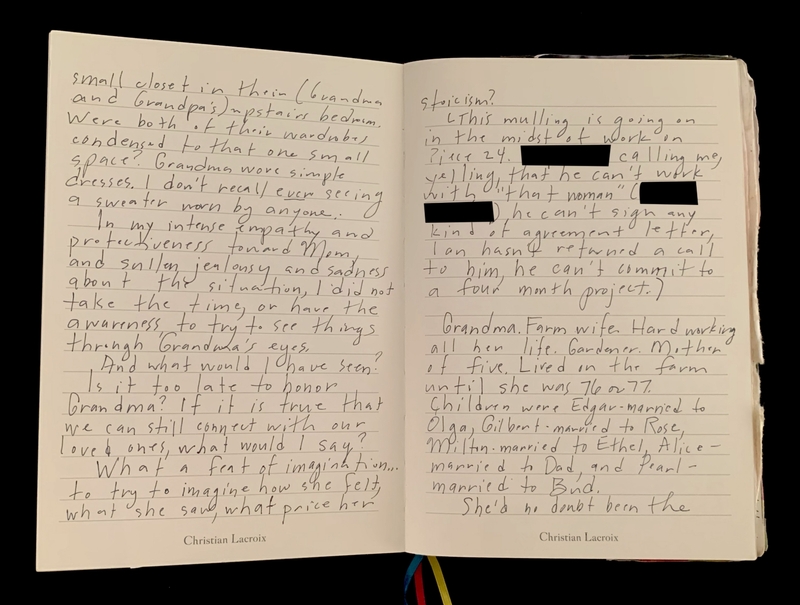 small closet in their (Grandma
and Grandpa's) upstairs bedroom.
Were both of their wardrobes
condensed to that one small
space? Grandma wore simple
dresses. I don't recall ever seeing
a sweater worn by anyone.
In my intense empathy and
protectiveness toward Mom,
and sullen jealousy and sadness
about the situation, I did not
take the time, or have the
awareness to try to see things
through Grandma's eyes.
And what would I have seen?
Is it too late to honor
Grandma? If it is true that
we can still connect with our
loved ones, what would I say?
What a feat of imagination...
to try to imagine how she felt,
what she saw, what price her
Christian Lacroix
stoicism?
(This mulling is going on
in the midst of work on
Piece 24. calling me,
yelling, that he can't work
with "that woman" (
) he can't sign any
kind of agreement letter,
Ian hasn't returned a call
to him, he can't commit to
a four month project.)
Grandma. Farm wife. Hard working
all her life. Gardener. Mother
of five. Lived on the farm
until she was 76 or 77.
Children were Edgar-married to
Olga, Gilbert-married to Rose,
Milton-married to Ethel, Alice-
married to Dad, and Pearl-
married to Bud.
She'd no doubt been the
Christian Lacroix